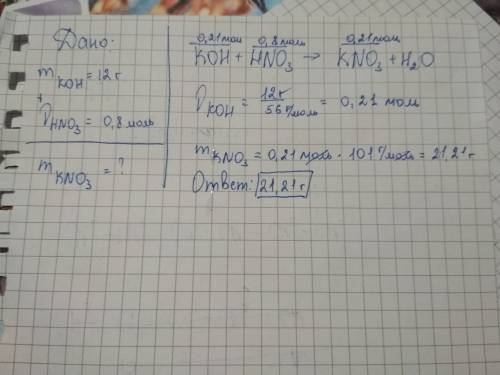 Дано:
m KOH = 12 г
+
ν HNO₃ = 0,8 моль
m KNO₃ = ?
0,21 мол 0,8 моль 0,21 мол
KOH + HNO₃ → KNO₃ + H₂O
ν KOH = 12г / 56 г/моль = 0,21 мол
m KNO₃ = 0,21 моль · 101 г/моль = 21,21 г
Ответ: 21,21 г